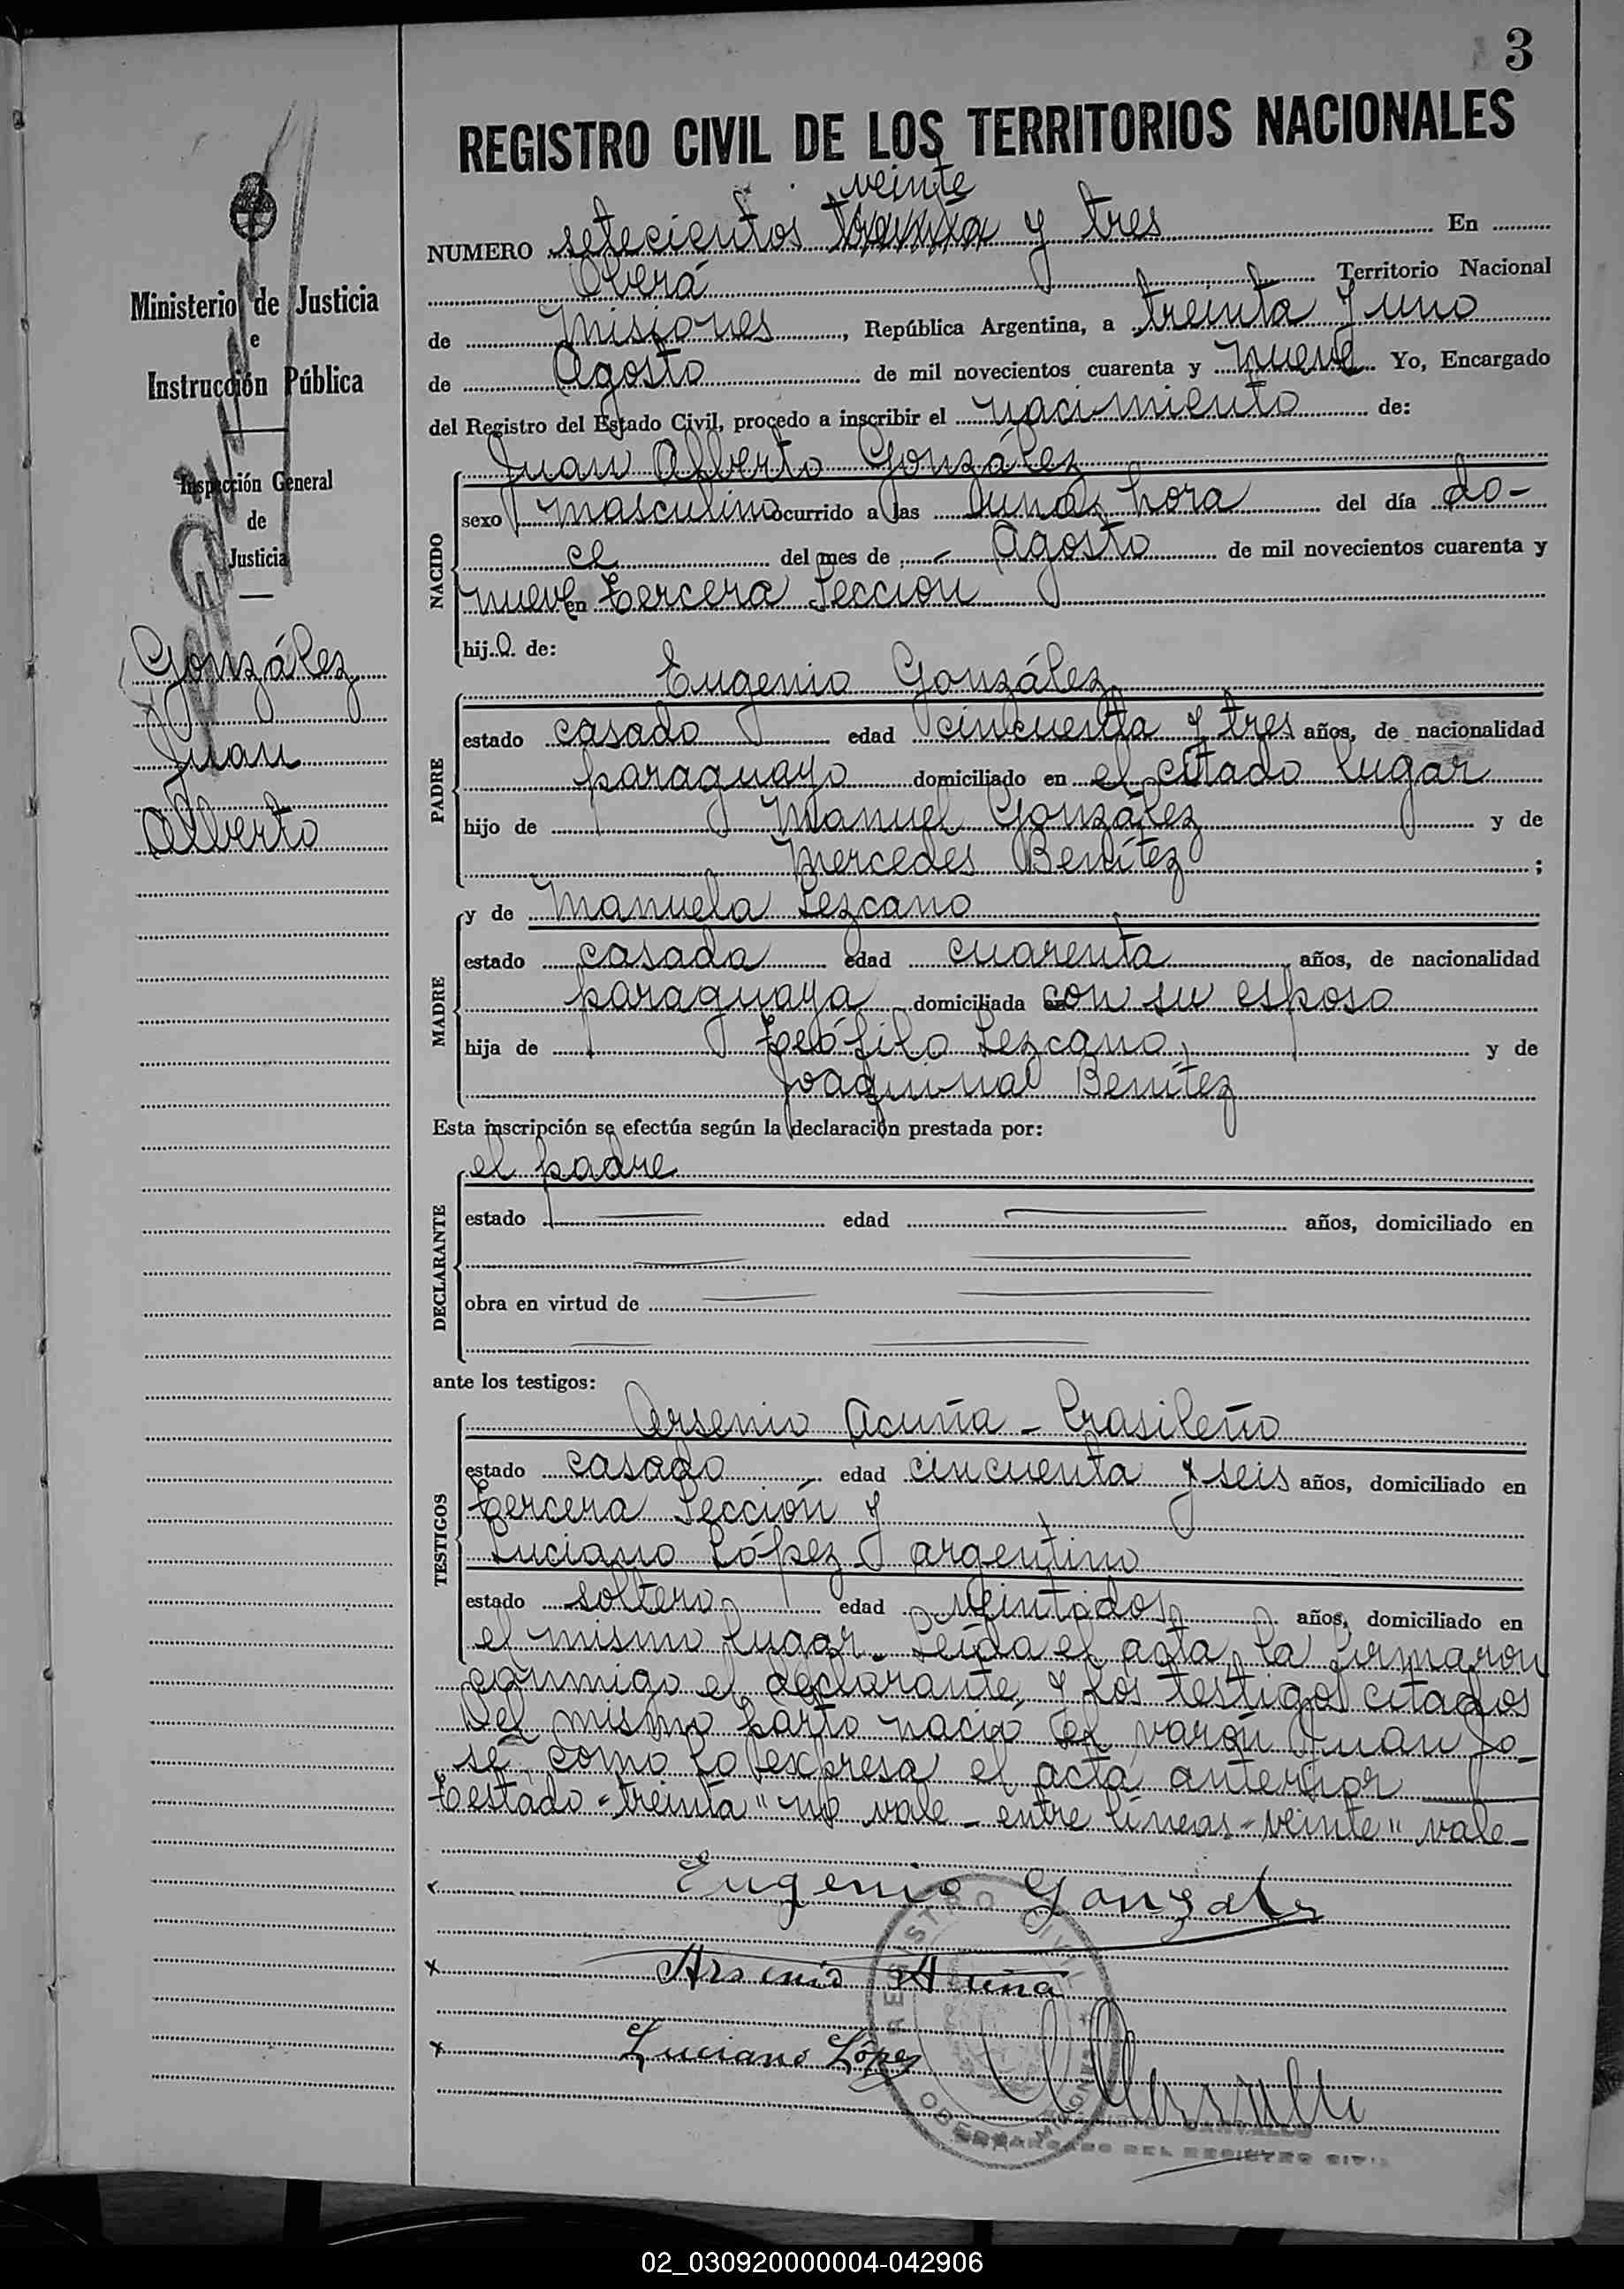 3
REGISTRO CIVIL DE LOS TERRITORIOS NACIONALES
veinte
NUMERO setecientos treinta y tres En
Oberá Territorio Nacional
de Misiones, República Argentina, a treinta y uno
de Agosto de mil novecientos cuarenta y nueve Yo, Encargado
del Registro del Estado Civil, procedo a inscribir el nacimiento de:
Ministerio de Justicia
e
Instrucción Pública
Inspección General
de
Justicia
González
Juan
Alberto
NACIDO
Juan Alberto González
sexo masculino ocurrido a las una hora del día do-
ce del mes de Agosto de mil novecientos cuarenta y
nueve en tercera Sección
hijo de:
PADRE
Eugenio González
estado casado edad cincuenta y tres años, de nacionalidad
paraguayo domiciliado en el citado lugar
hijo de Manuel González y de
Mercedes Benítez ;
MADRE
y de Manuela Lezcano
estado casada edad cuarenta años, de nacionalidad
paraguaya domiciliada con su esposo
hija de Teófilo Lezcano y de
Joaquina Benítez
Esta inscripción se efectúa según la declaración prestada por:
DECLARANTE
el padre
estado edad años, domiciliado en
obra en virtud de
ante los testigos:
TESTIGOS
Arsenio Acuña - brasileño
estado casado edad cincuenta y seis años, domiciliado en
tercera Sección y
Luciano López argentino
estado soltero edad veintidos años, domiciliado en
el mismo lugar. Leída el acta, la firmaron
conmigo el declarante, y los testigos citados
Del mismo parto nació el varón Juan Jo-
sé, como lo expresa el acta anterior
Testado "treinta" no vale - entre líneas "veinte" vale -
Eugenio Gonzalez
x Arsenio Acuña
x Luciano López
REGISTRO CIVIL
OBERA MISIONES
ENCARGADO DEL REGISTRO CIVIL
02_030920000004-042906